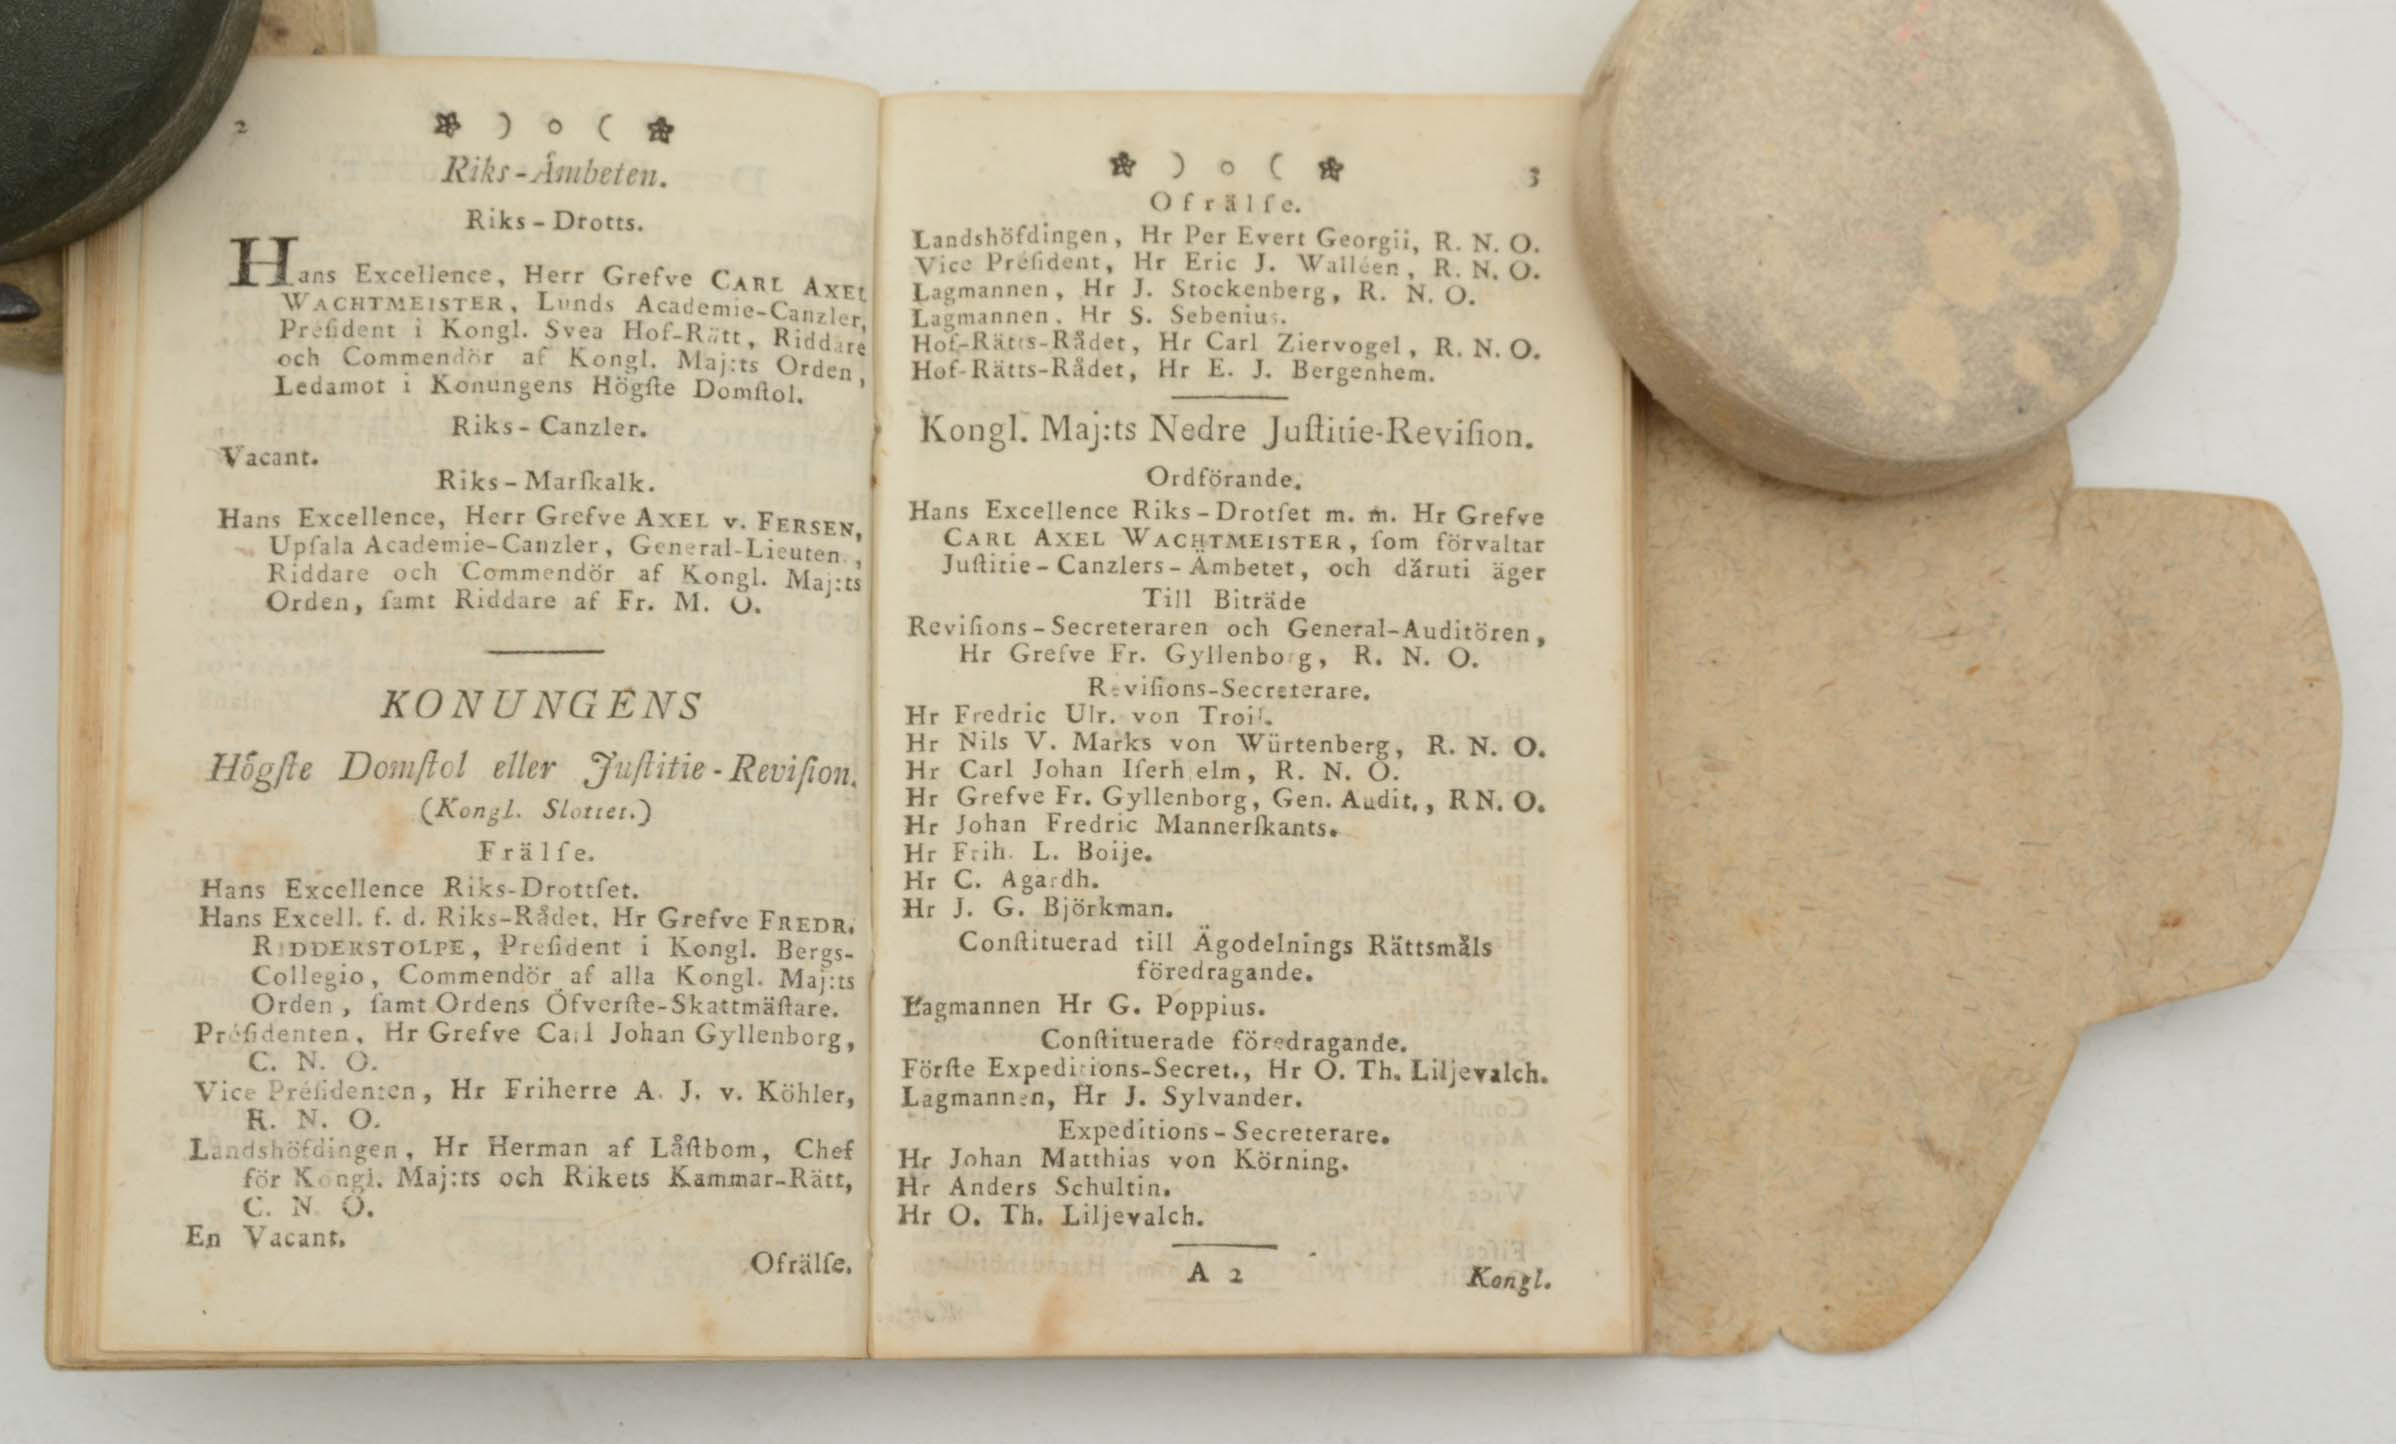 2
Riks-Ämbeten.
Riks-Drotts.
Hans Excellence, Herr Grefve CARL AXEL
WACHTMEISTER, Lunds Academie-Canzler,
Præsident i Kongl. Svea Hof-Rätt, Riddare
och Commendör af Kongl. Maj:ts Orden,
Ledamot i Konungens Högſte Domſtol.
Riks-Canzler.
Vacant.
Riks-Marſkalk.
Hans Excellence, Herr Grefve AXEL v. FERSEN,
Upſala Academie-Canzler, General-Lieuten.,
Riddare och Commendör af Kongl. Maj:ts
Orden, ſamt Riddare af Fr. M. O.
KONUNGENS
Högſte Domſtol eller Juſtitie-Reviſion.
(Kongl. Slottet.)
Frälſe.
Hans Excellence Riks-Drottſet.
Hans Excell. f. d. Riks-Rådet, Hr Grefve FREDR.
RIDDERSTOLPE, Præſident i Kongl. Bergs-
Collegio, Commendör af alla Kongl. Maj:ts
Orden, ſamt Ordens Öfverſte-Skattmäſtare.
Præſidenten, Hr Grefve Carl Johan Gyllenborg,
C. N. O.
Vice Præſidenten, Hr Friherre A. J. v. Köhler,
R. N. O.
Landshöfdingen, Hr Herman af Låſtbom, Chef
för Kongl. Maj:ts och Rikets Kammar-Rätt,
C. N. O.
En Vacant.
Ofrälſe.
3
Ofrälſe.
Landshöfdingen, Hr Per Evert Georgii, R. N. O.
Vice Préſident, Hr Eric J. Walléen, R. N. O.
Lagmannen, Hr J. Stockenberg, R. N. O.
Lagmannen, Hr S. Sebenius.
Hof-Rätts-Rådet, Hr Carl Ziervogel, R. N. O.
Hof-Rätts-Rådet, Hr E. J. Bergenhem.
Kongl. Maj:ts Nedre Juſtitie-Reviſion.
Ordförande.
Hans Excellence Riks-Drotſet m. m. Hr Grefve
CARL AXEL WACHTMEISTER, ſom förvaltar
Juſtitie-Canzlers-Ämbetet, och däruti äger
Till Biträde
Reviſions-Secreteraren och General-Auditören,
Hr Grefve Fr. Gyllenborg, R. N. O.
Reviſions-Secreterare.
Hr Fredric Ulr. von Troil.
Hr Nils V. Marks von Würtenberg, R. N. O.
Hr Carl Johan Iſerhjelm, R. N. O.
Hr Grefve Fr. Gyllenborg, Gen. Audit., R N. O.
Hr Johan Fredric Mannerſkants.
Hr Frih. L. Boije.
Hr C. Agardh.
Hr J. G. Björkman.
Conſtituerad till Ägodelnings Rättsmåls
föredragande.
Lagmannen Hr G. Poppius.
Conſtituerade föredragande.
Förſte Expeditions-Secret., Hr O. Th. Liljevalch.
Lagmannen, Hr J. Sylvander.
Expeditions-Secreterare.
Hr Johan Matthias von Körning.
Hr Anders Schultin.
Hr O. Th. Liljevalch.
A 2
Kongl.